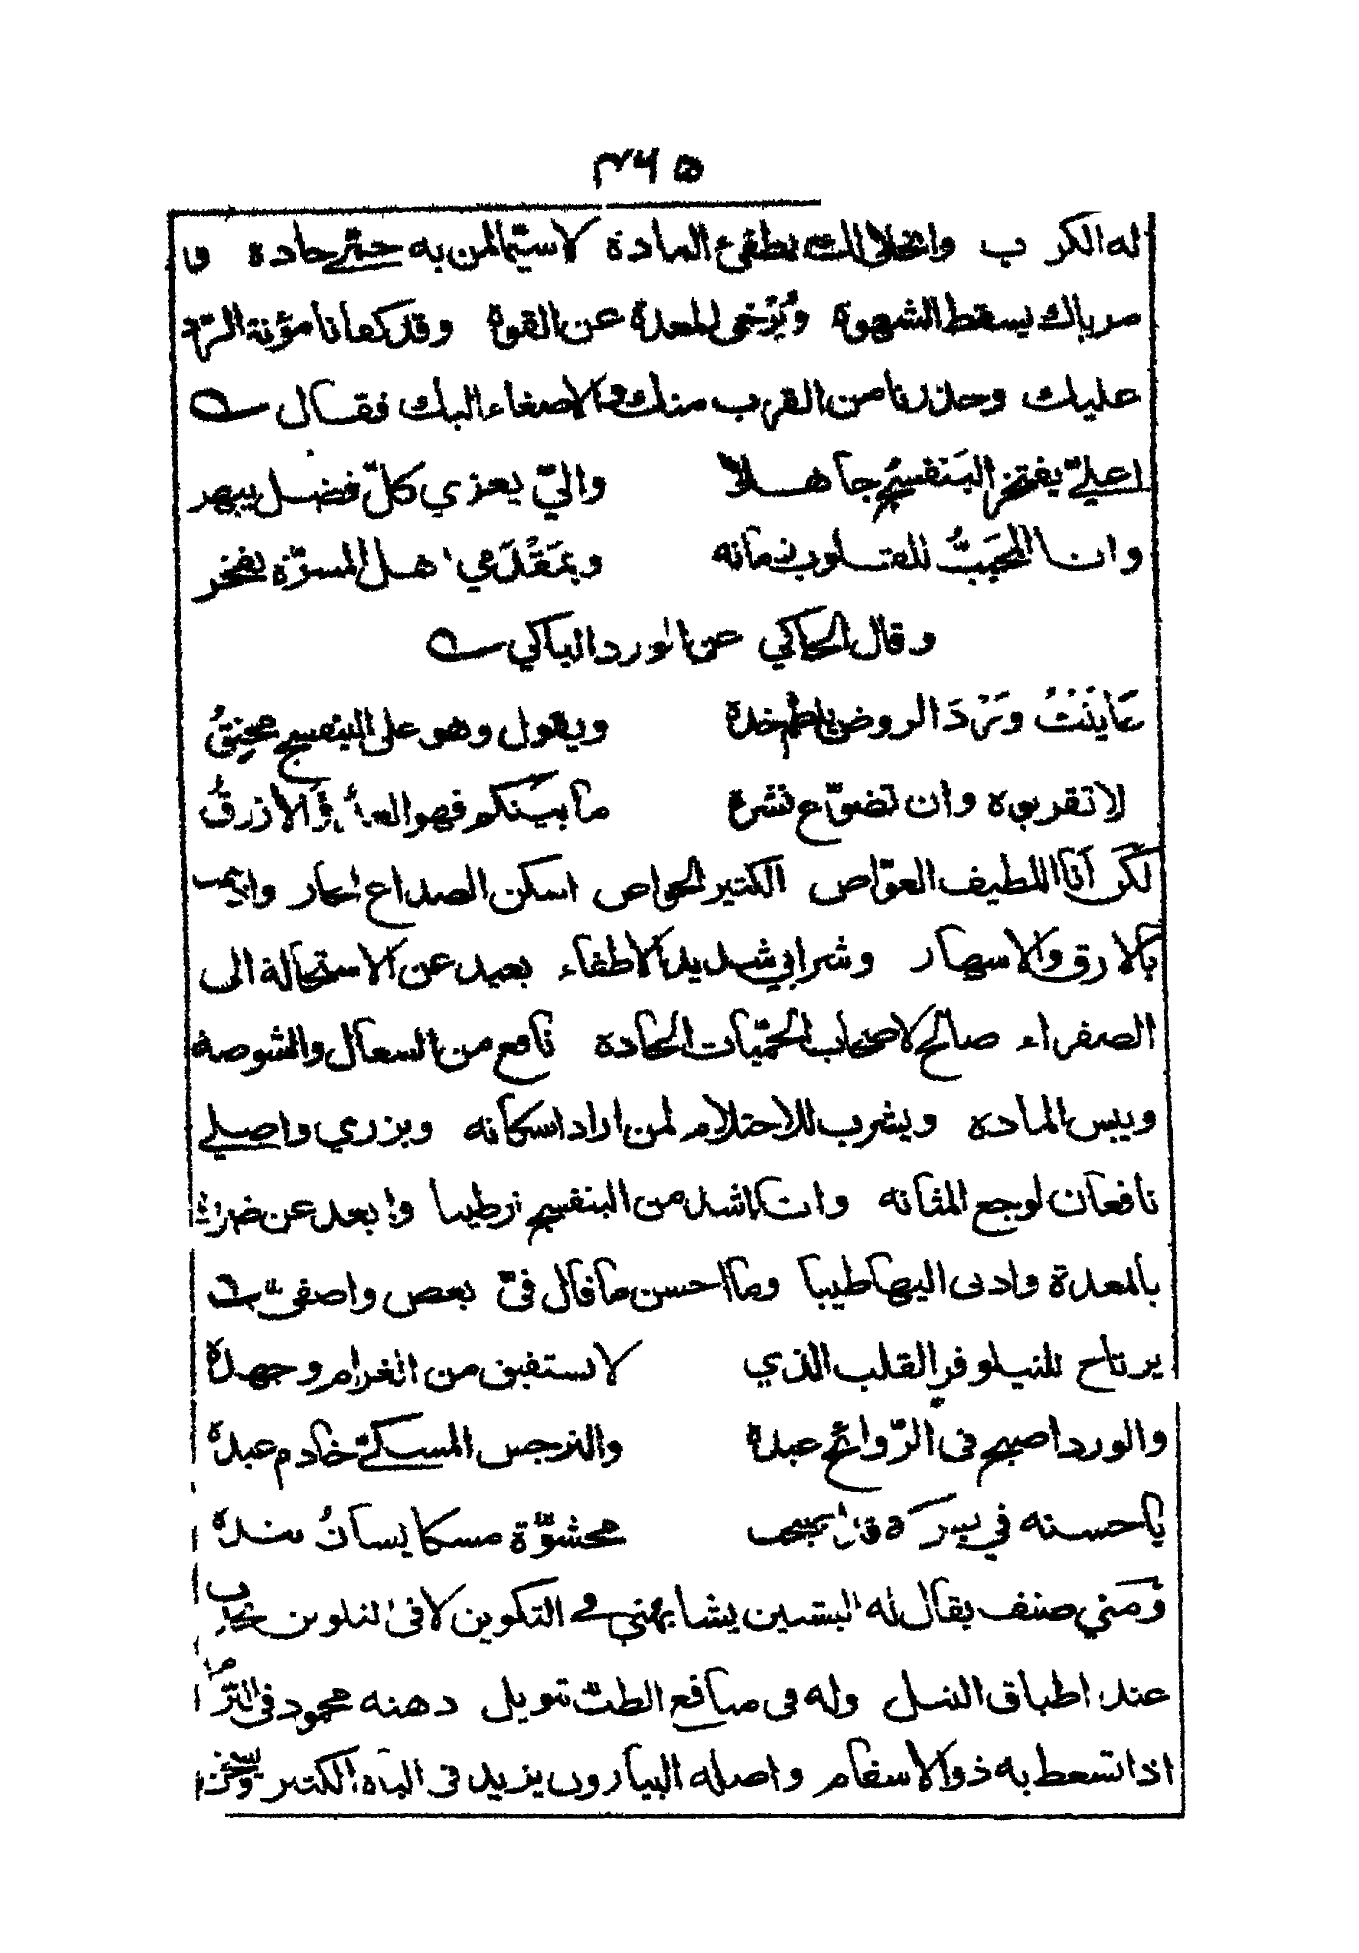 ٣٦٥
له الكر ب وانحلالك يطفئ المادة لا سيما لمن به حتى حادة و
مرباك يسقط الشهوة ويرخى المعدة عن القوة وقد كفانا مؤنة الرد
عليك وحذرنا من القرب منك والاصغاء اليك فقال
اعليّ يفتخر البَنَفسج جاهلا والىّ يعزي كلّ فضل يبهر
وانا المحبَّبُ للقلوب زمانه وبمَقْدَمي اهل المسرّة يفخر
وقال الحاكي عن الورد الباكي
عاينتُ وَرْدَ الروض يلطم خده ويقول وهو على البنفسج محنقُ
لا تقربوه وان تضوّع نشره ما بينكم فهو العدوُّ الأزرقُ
لكن أنا اللطيف الغوّاص الكثير الخواص اسكن الصداع الحار واذهب
بالارق والاسهار وشرابي شديد الاطفاء بعيد عن الاستحالة الى
الصفراء صالح لاصحاب الحميّات الحاده نافع من السعال والشوصة
ويبس الماده ويشرب للاحتلام لمن اراد اسكانه وبزري واصلي
نافعان لوجع المثانه وانا اشد من البنفسج ترطيبا وابعد عن ضرر
بالمعدة وادنى اليها طيبا وما احسن ما قال فىّ بعض واصفىّ
يرتاح للنيلوفر القلب الذي لا يستفيق من الغرام وجهده
والورد اصبح فى الرّوائح عبده والنرجس المسكىّ خادم عبده
يا حسنه في بركة قد اصبحت محشوّة مسكا يسان بنده
ومني صنف يقال له البشنين يشابهني في التكوين لا فى التلوين
عند اطباق الليل وله فى منافع الطبّ تنويل دهنه محمود فى
اذا تسعط به ذو الاسقام واصله البيارون يزيد فى الباه الكثير